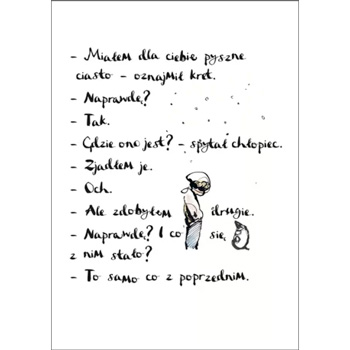 - Miałem dla ciebie pyszne
ciasto - oznajmił kret.
- Naprawdę?
- Tak.
- Gdzie ono jest? - spytał chłopiec.
- Zjadłem je.
- Och.
- Ale zdobyłem drugie.
- Naprawdę? I co się
z nim stało?
- To samo co z poprzednim.